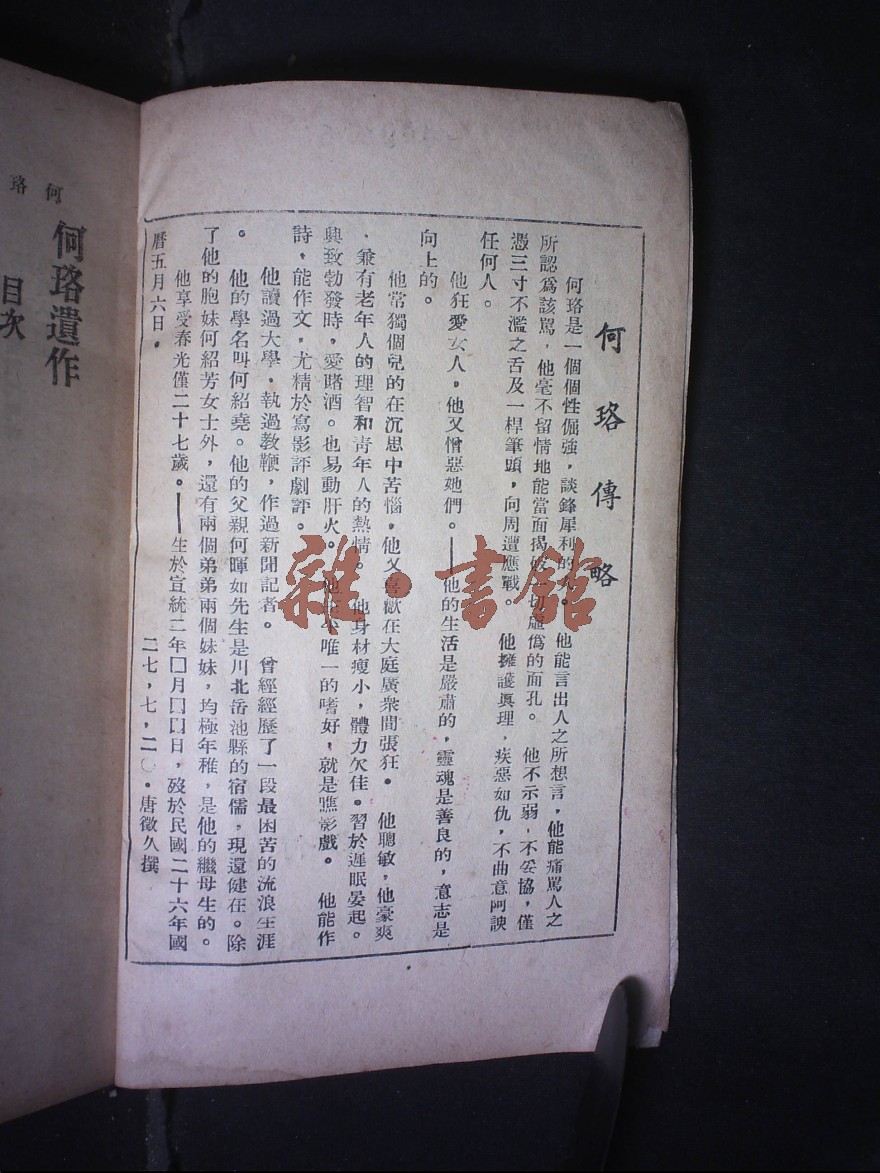 何珞傳略
何珞是一個個性倔強，談鋒犀利的人。他能言出人之所想言，他能痛罵人之
所認爲該罵，他毫不留情地能當面揭破一切虛僞的面孔。他不示弱，不妥協，僅
憑三寸不濫之舌及一桿筆頭，向周遭應戰。他擁護眞理，疾惡如仇，不曲意阿諛
任何人。
他狂愛女人。他又憎惡她們。——他的生活是嚴肅的，靈魂是善良的，意志是
向上的。
他常獨個兒的在沉思中苦惱，他又喜歡在大庭廣衆間張狂。他聰敏，他豪爽
，兼有老年人的理智和靑年人的熱情。他身材瘦小，體力欠佳。習於遲眠晏起。
興致勃發時，愛賭酒。也易動肝火。他唯一的嗜好，就是瞧影戲。他能作
詩，能作文，尤精於寫影評劇評。
他讀過大學，執過教鞭，作過新聞記者。曾經經歷了一段最困苦的流浪生涯
。他的學名叫何紹堯。他的父親何暉如先生是川北岳池縣的宿儒，現還健在。除
了他的胞妹何紹芳女士外，還有兩個弟弟兩個妹妹，均極年稚，是他的繼母生的。
他享受春光僅二十七歲。——生於宣統二年□月□□日，歿於民國二十六年國
曆五月六日。
二七，七，二〇．唐徵久撰
何珞
何珞遺作
目次
雜·書館